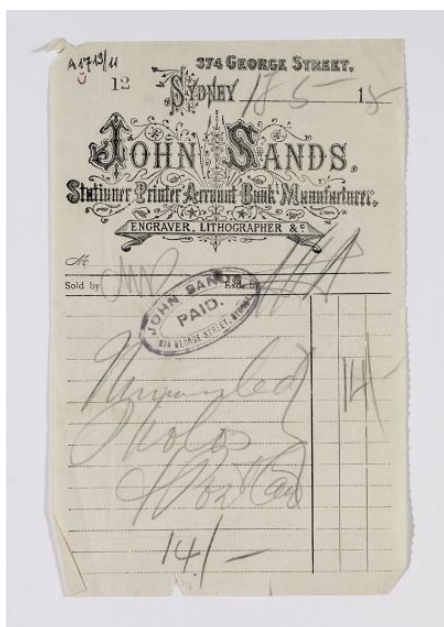 A1713/11
12
374 GEORGE STREET,
SYDNEY 18-5-15
JOHN SANDS,
Stationer Printer Account Book Manufacturer,
ENGRAVER, LITHOGRAPHER &c
M
Sold by
JOHN SANDS
PAID.
374 GEORGE-STREET, SYDNEY
Unmounted 14/-
Photos
14/-